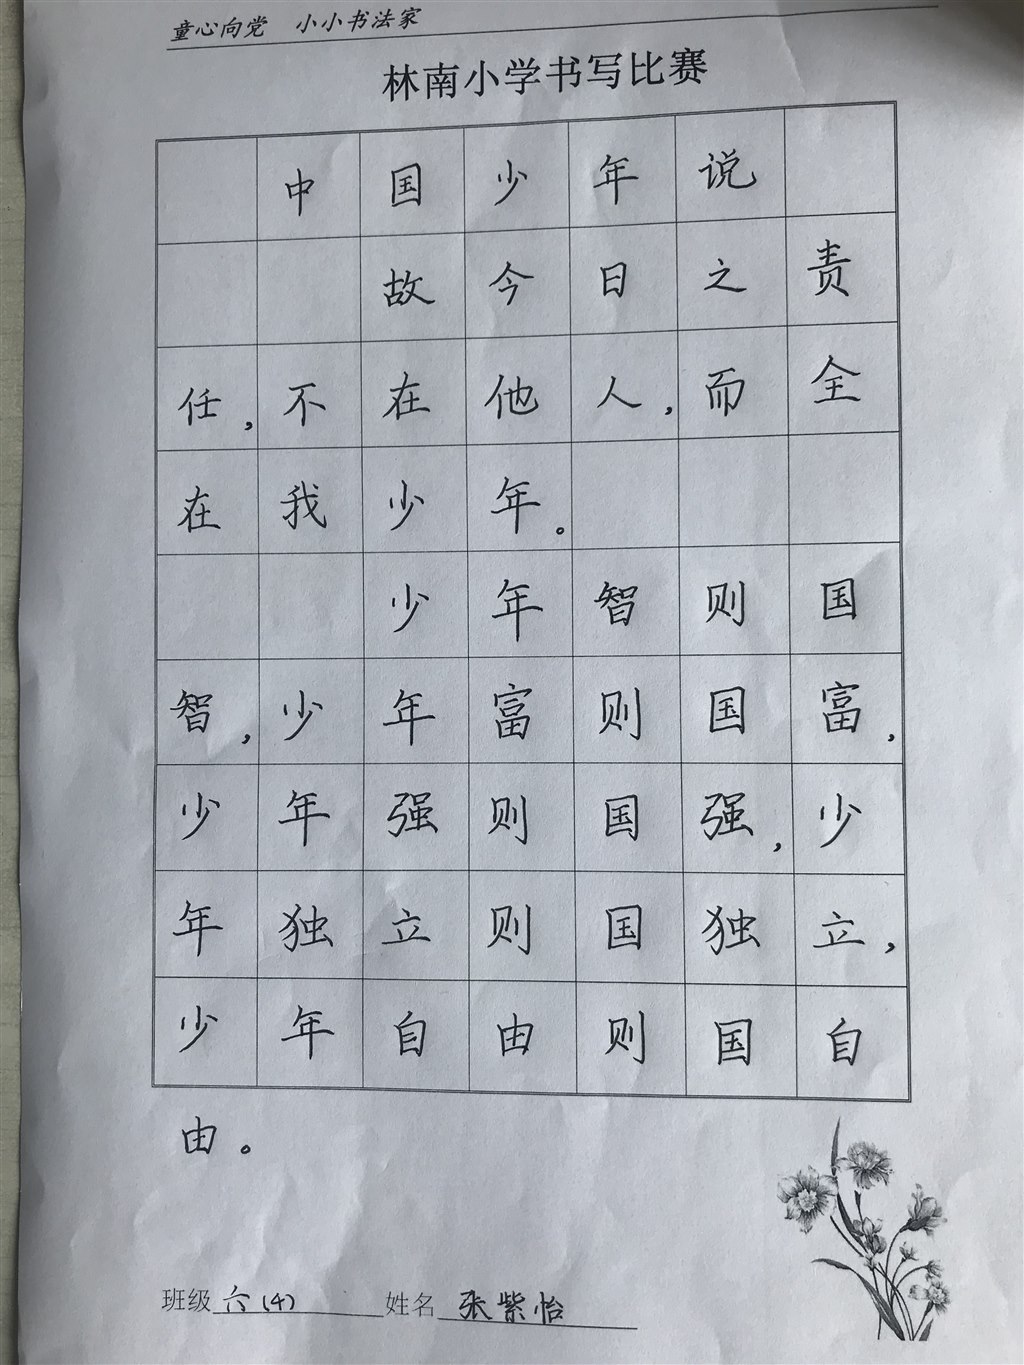 童心向党 小小书法家
林南小学书写比赛
中国少年说
故今日之责
任,不在他人,而全
在我少年。
少年智则国
智,少年富则国富,
少年强则国强,少
年独立则国独立,
少年自由则国自
由。
班级 六(4) 姓名 张紫怡